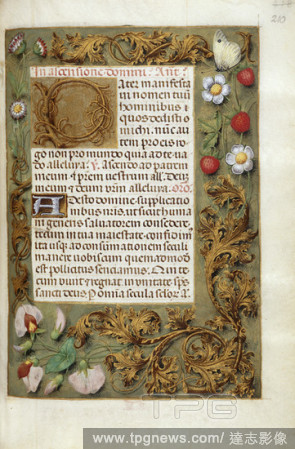 In ascensione domini. Ant'
Ater manifesta
ui nomen tuũ
hominibus
quos dedisti
michi. nũc aũ
tem pro eis ro
go non pro mundo quia ad te ua
do alleluya. Ascendo ad patrem
meum & patrem uestrum all. Deũ
meum & deum urm̃ alleluya. oro.
Adesto domine supplicatio
nibus nr̃is. ut sicut humani
generis saluatorem consedere
tecum in tua maiestate. confidim9
ita usq ad consummationem seculi
manere nobiscum quemadmodũ
est pollicitus senciamus. Qui te
cum uiuit & regnat in unitate sp̃s
sancti deus. P omnia secula selor. A.
TPG
www.tpgnews.com / 達志影像